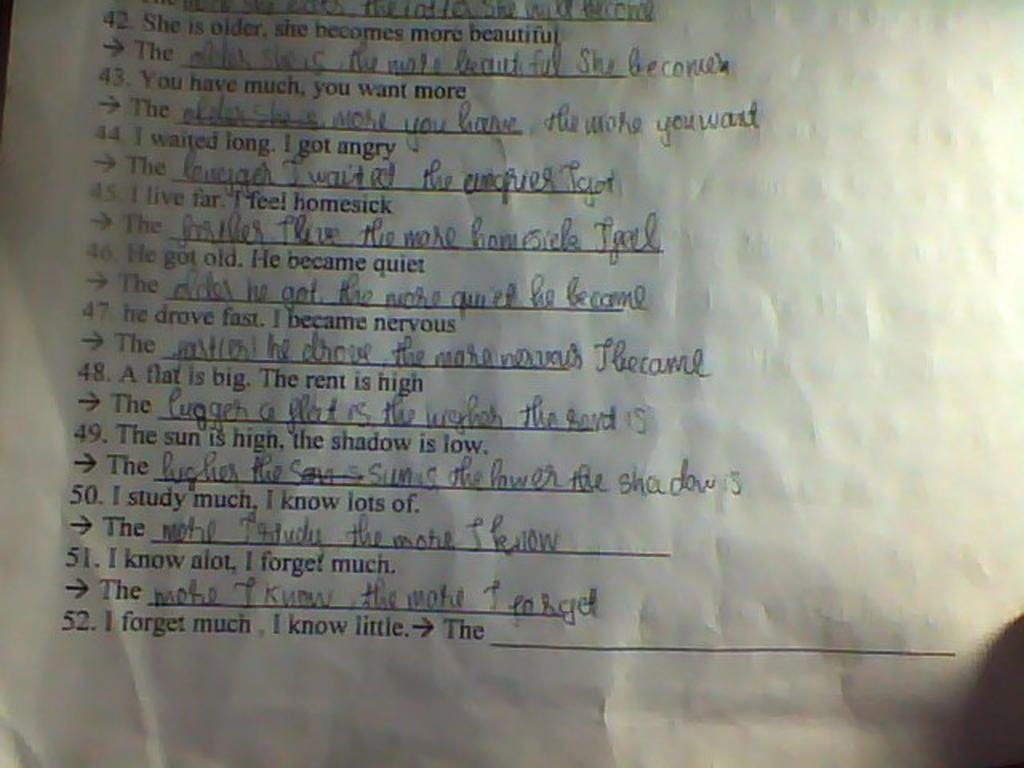 The more she eats the fatter she will become
42. She is older, she becomes more beautiful
→ The older she is, the more beautiful she becomes
43. You have much, you want more
→ The older she is more you have, the more you want
44. I waited long. I got angry
→ The longer I waited the angrier I got
45. I live far. I feel homesick
→ The I live the more homesick I feel
46. He got old. He became quiet
→ The older he got, the more quiet he became
47. he drove fast. I became nervous
→ The he drove, the more nervous I became
48. A flat is big. The rent is high
→ The bigger a flat is the higher the rent is
49. The sun is high, the shadow is low.
→ The higher the sun is the lower the shadow is
50. I study much, I know lots of.
→ The more I study the more I know
51. I know alot, I forget much.
→ The more I know, the more I forget
52. I forget much , I know little.→ The